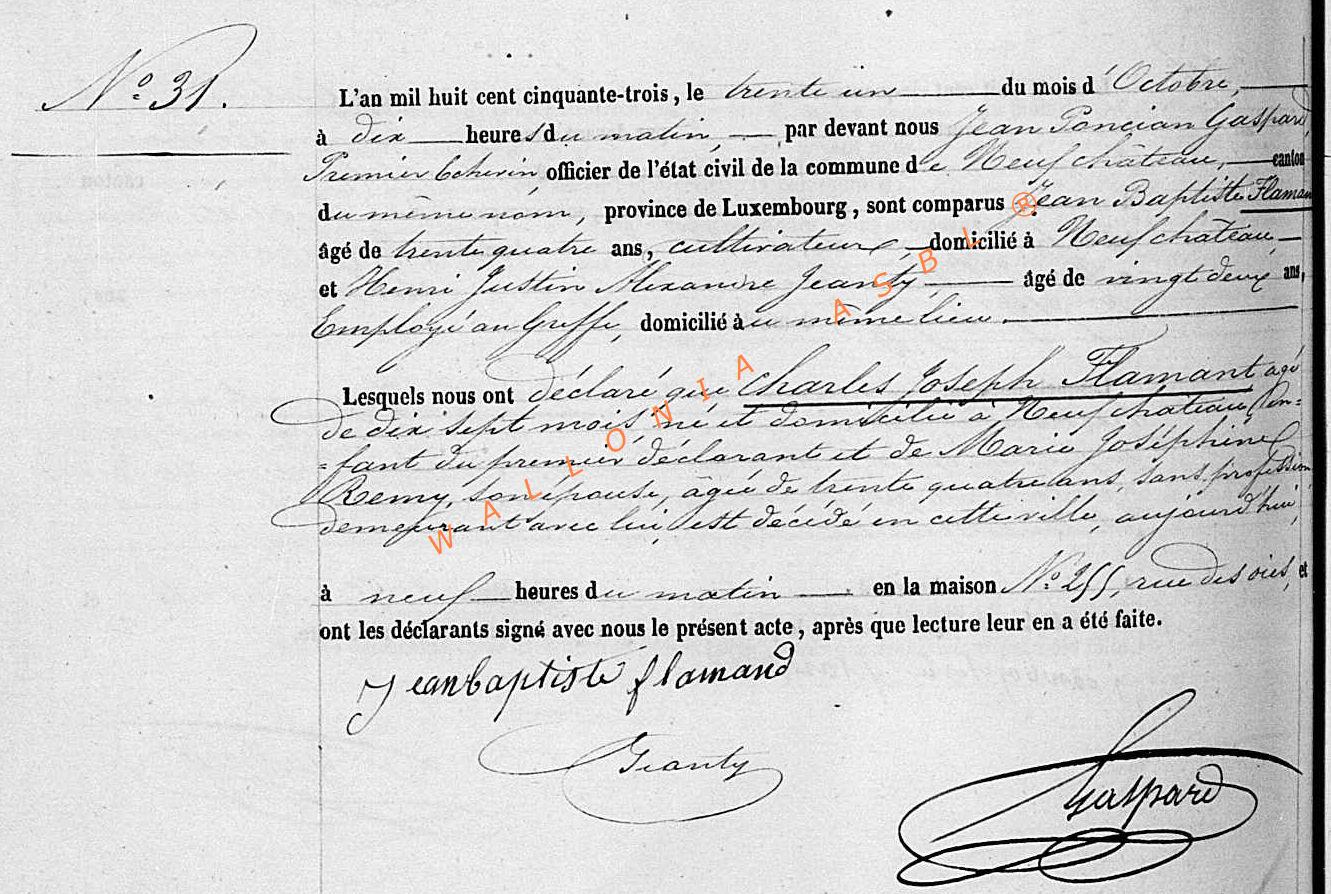 N° 31.
L'an mil huit cent cinquante-trois, le trente un du mois d'Octobre,
à dix heures du matin, par devant nous Jean Poncian Gaspard,
Premier Echevin, officier de l'état civil de la commune de Neufchâteau, canton
du même nom, province de Luxembourg, sont comparus Jean Baptiste Flamant
âgé de trente quatre ans, cultivateur, domicilié à Neufchâteau,
et Henri Justin Alexandre Jeanty, âgé de vingt deux ans,
Employé au Greffe, domicilié au même lieu.
Lesquels nous ont déclaré que Charles Joseph Flamant âgé
de dix sept mois, né et domicilié à Neufchâteau, en-
-fant du premier déclarant et de Marie Joséphine
Remy, son épouse, âgée de trente quatre ans, sans profession
demeurant avec lui, est décédé en cette ville, aujourd'hui,
à neuf heures du matin en la maison N° 255, rue des oies, et
ont les déclarants signé avec nous le présent acte, après que lecture leur en a été faite.
Jean baptiste flamand
Jeanty
Gaspard
WALLONIA ASBL ®